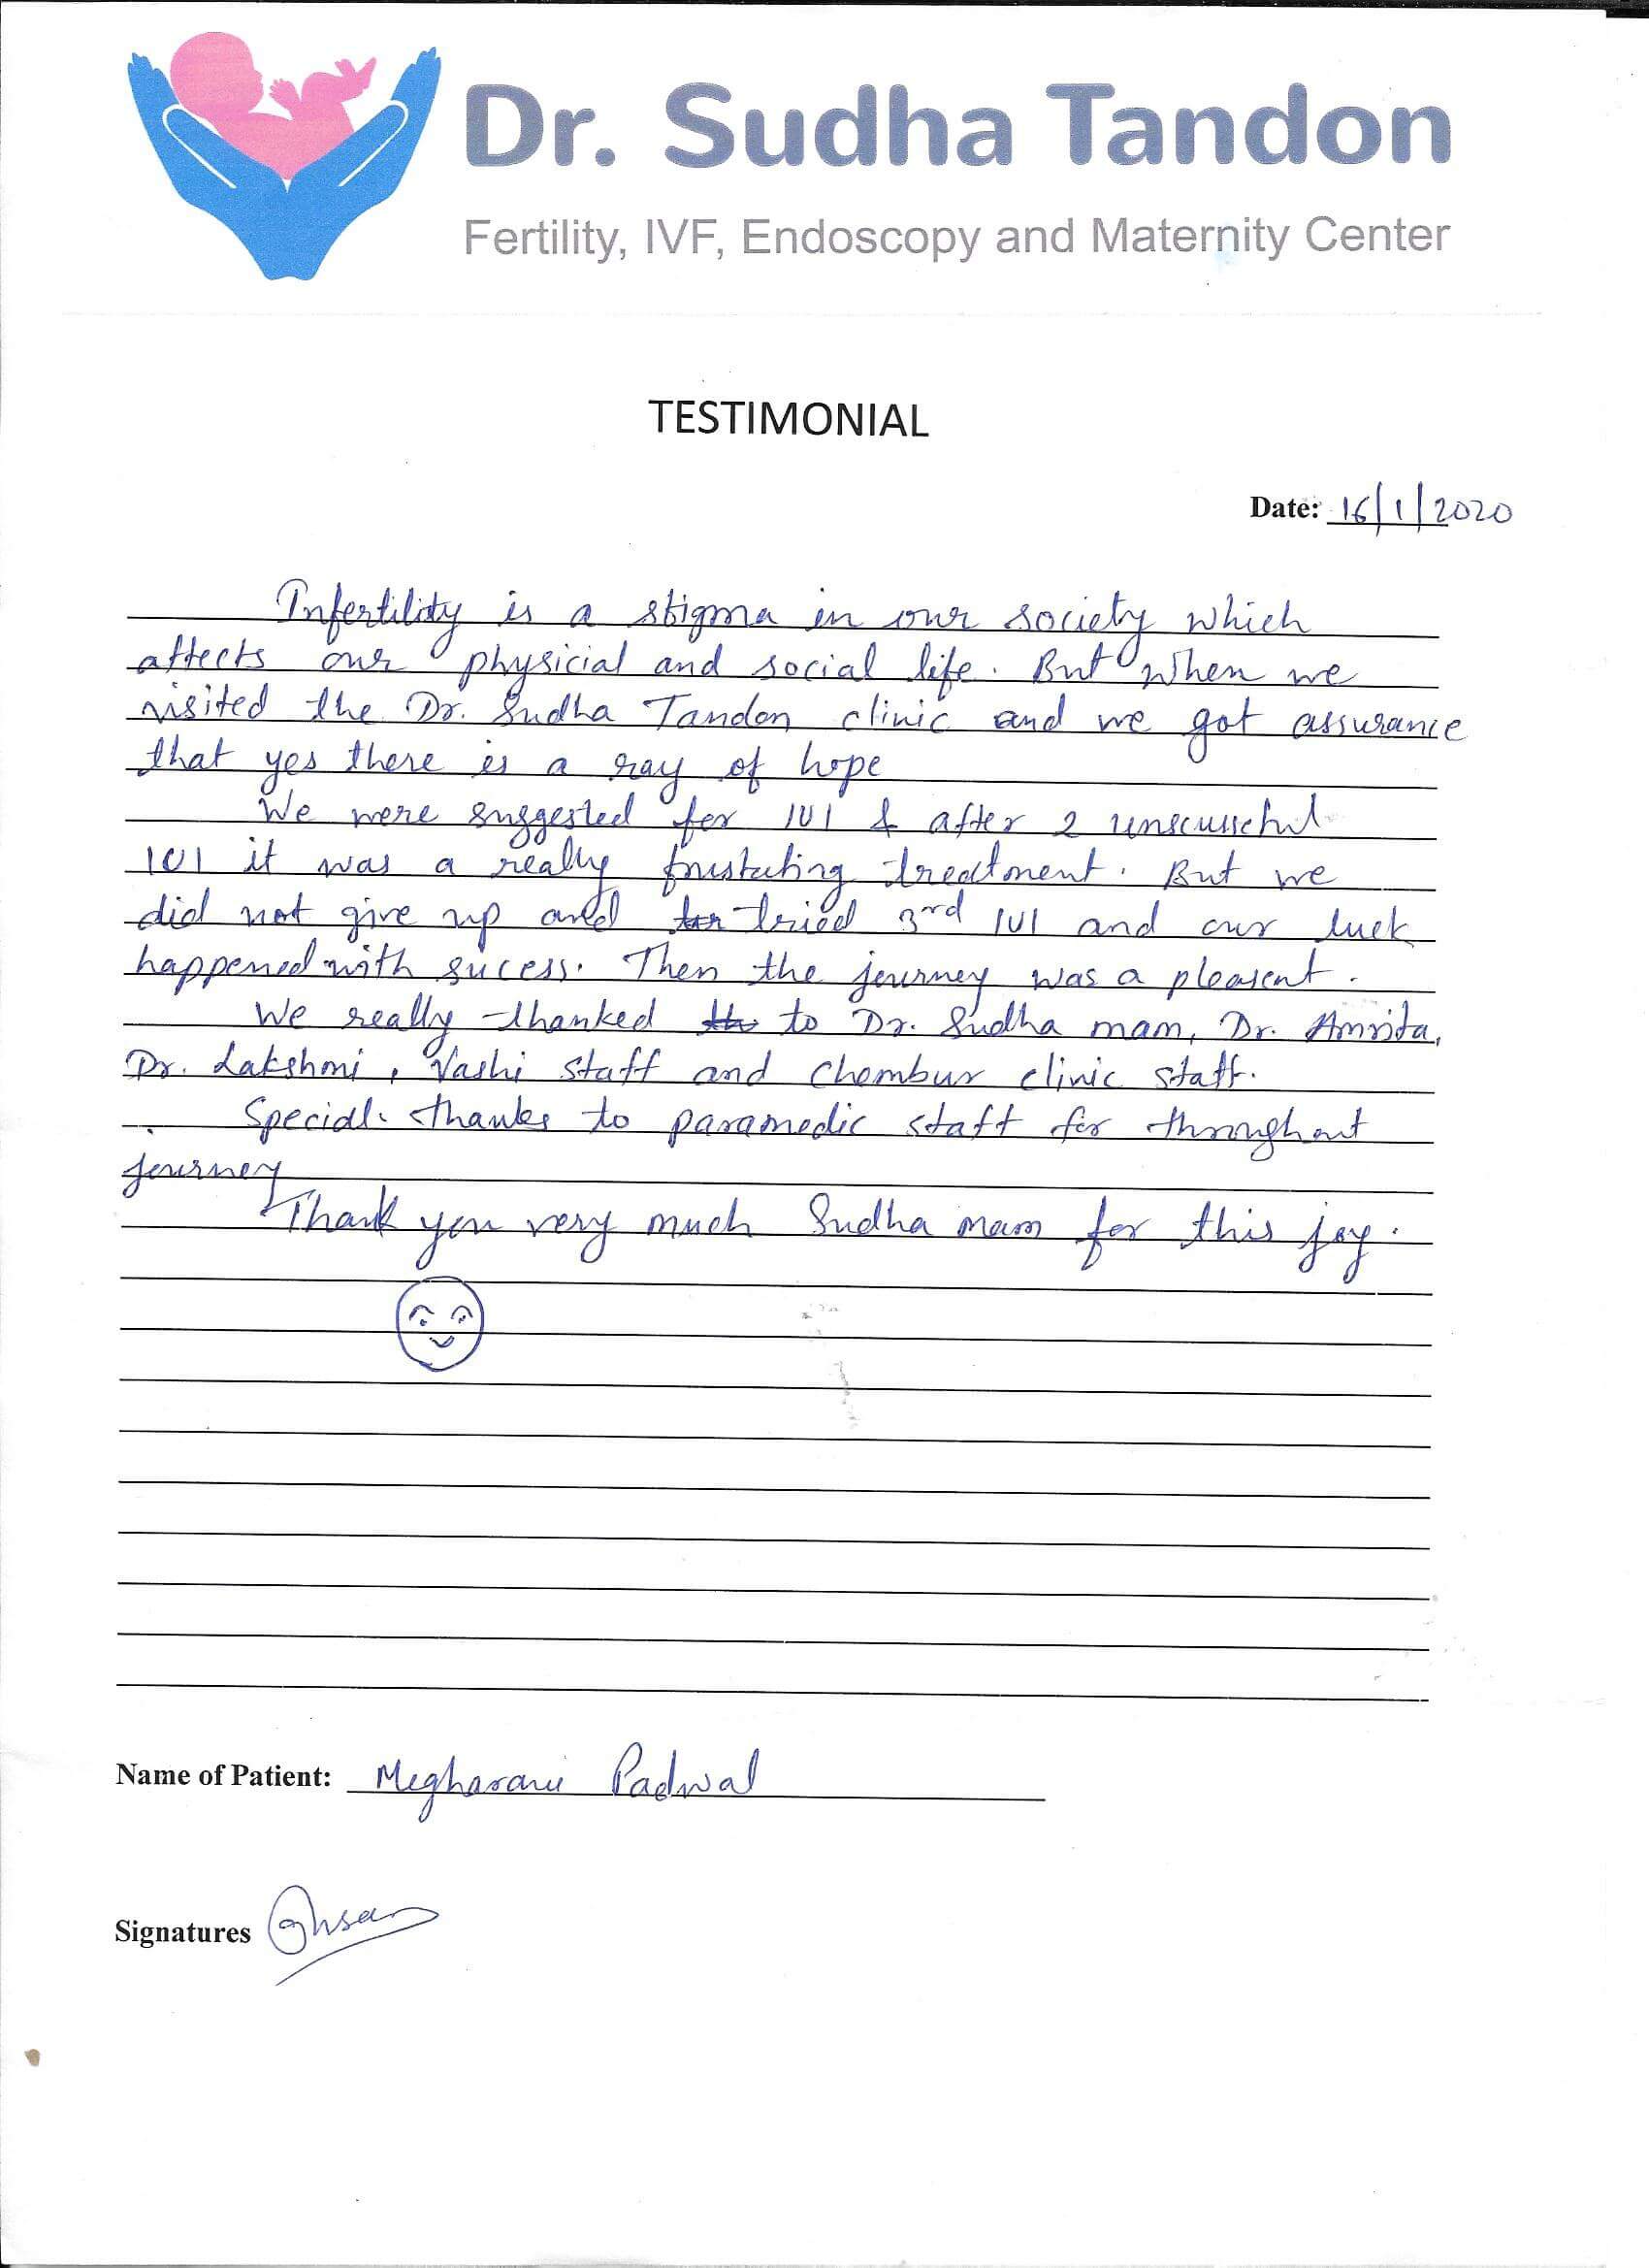 Dr. Sudha Tandon
Fertility, IVF, Endoscopy and Maternity Center
TESTIMONIAL
Date: 16/1/2020
Infertility is a stigma in our society which
affects our physicial and social life. But when we
visited the Dr. Sudha Tandon clinic and we got assurance
that yes there is a ray of hope
We were suggested for IUI & after 2
IUI it was a really frustating treatment. But we
did not give up and tried 3rd IUI and our luck
happened with sucess. Then the journey was a pleasent.
We really thanked to Dr. Sudha mam, Dr. Amrita,
Dr. Lakshmi, Vashi staff and Chembur clinic staff.
Special. thanks to paramedic staff for throughout
journey
Thank you very much Sudha mam for this joy.
Name of Patient: Megharani Padwal
Signatures